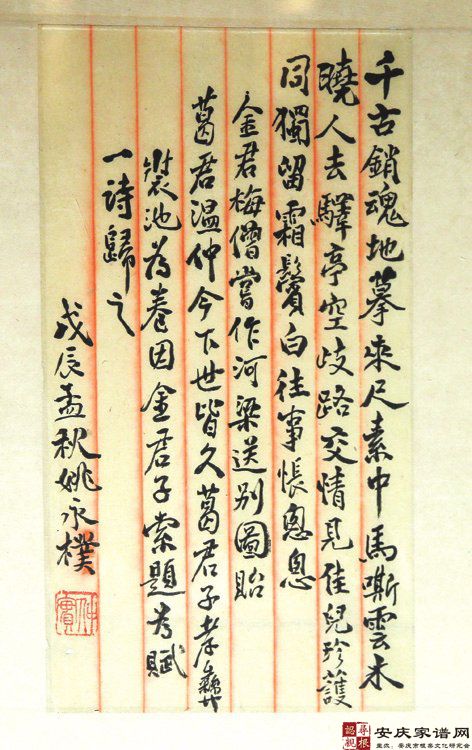 千古銷魂地摹來尺素中馬嘶雲木
曉人去驛亭空歧路交情見佳兒珍護
同獨留霜鬢白往事悵悤悤
金君梅僧嘗作河梁送別圖貽
葛君溫仲今下世皆久葛君子孝彝
裝池為卷因金君子索題為賦
一詩歸之
戊辰孟秋姚永樸
仲實
尋根認親
安庆家谱网